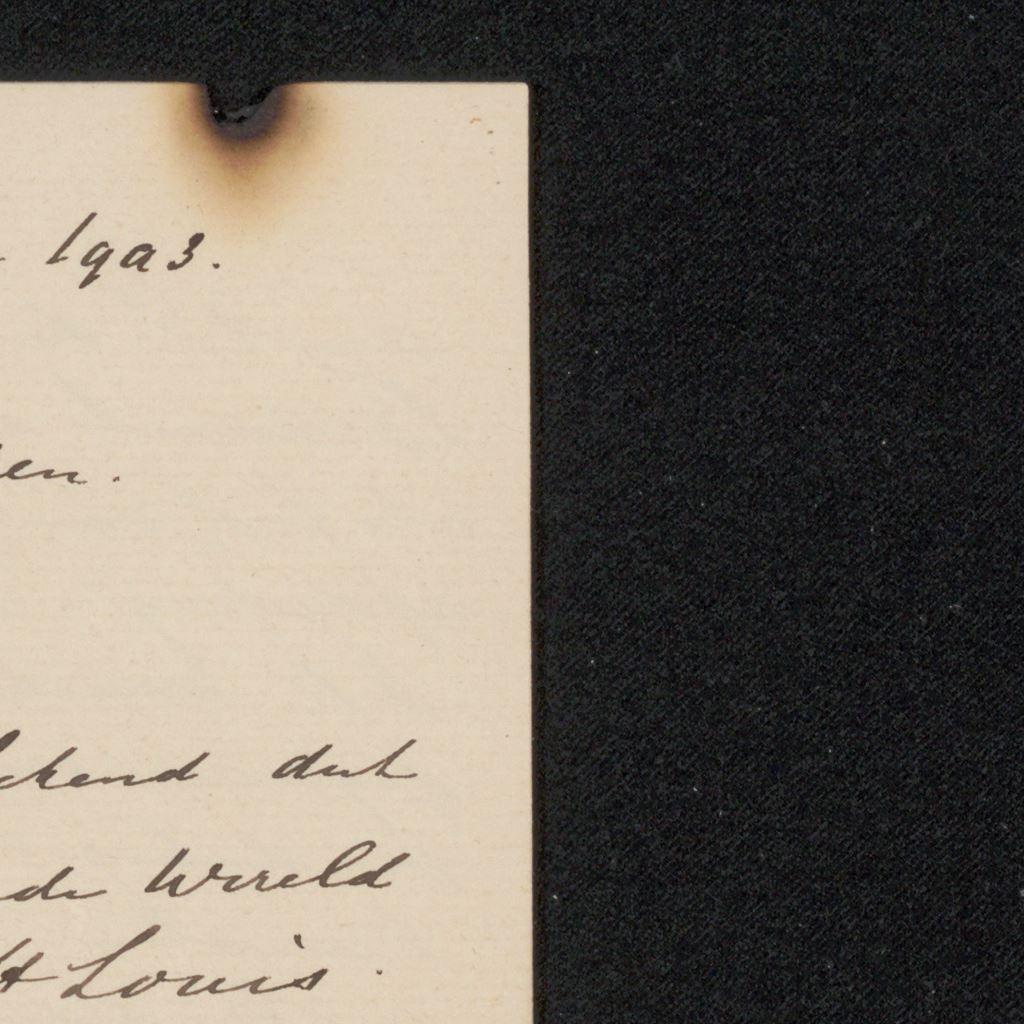 1903.
en.
kend dat
de Wereld
St Louis.